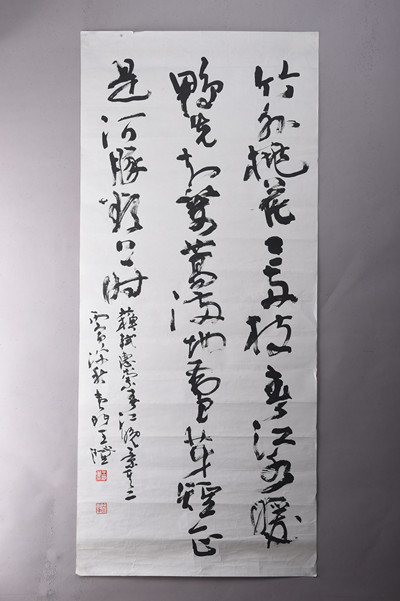 竹外桃花三两枝春江水暖
鸭先知蒌蒿满地芦芽短正
是河豚欲上时
蘇軾惠崇春江晚景其二
深秋